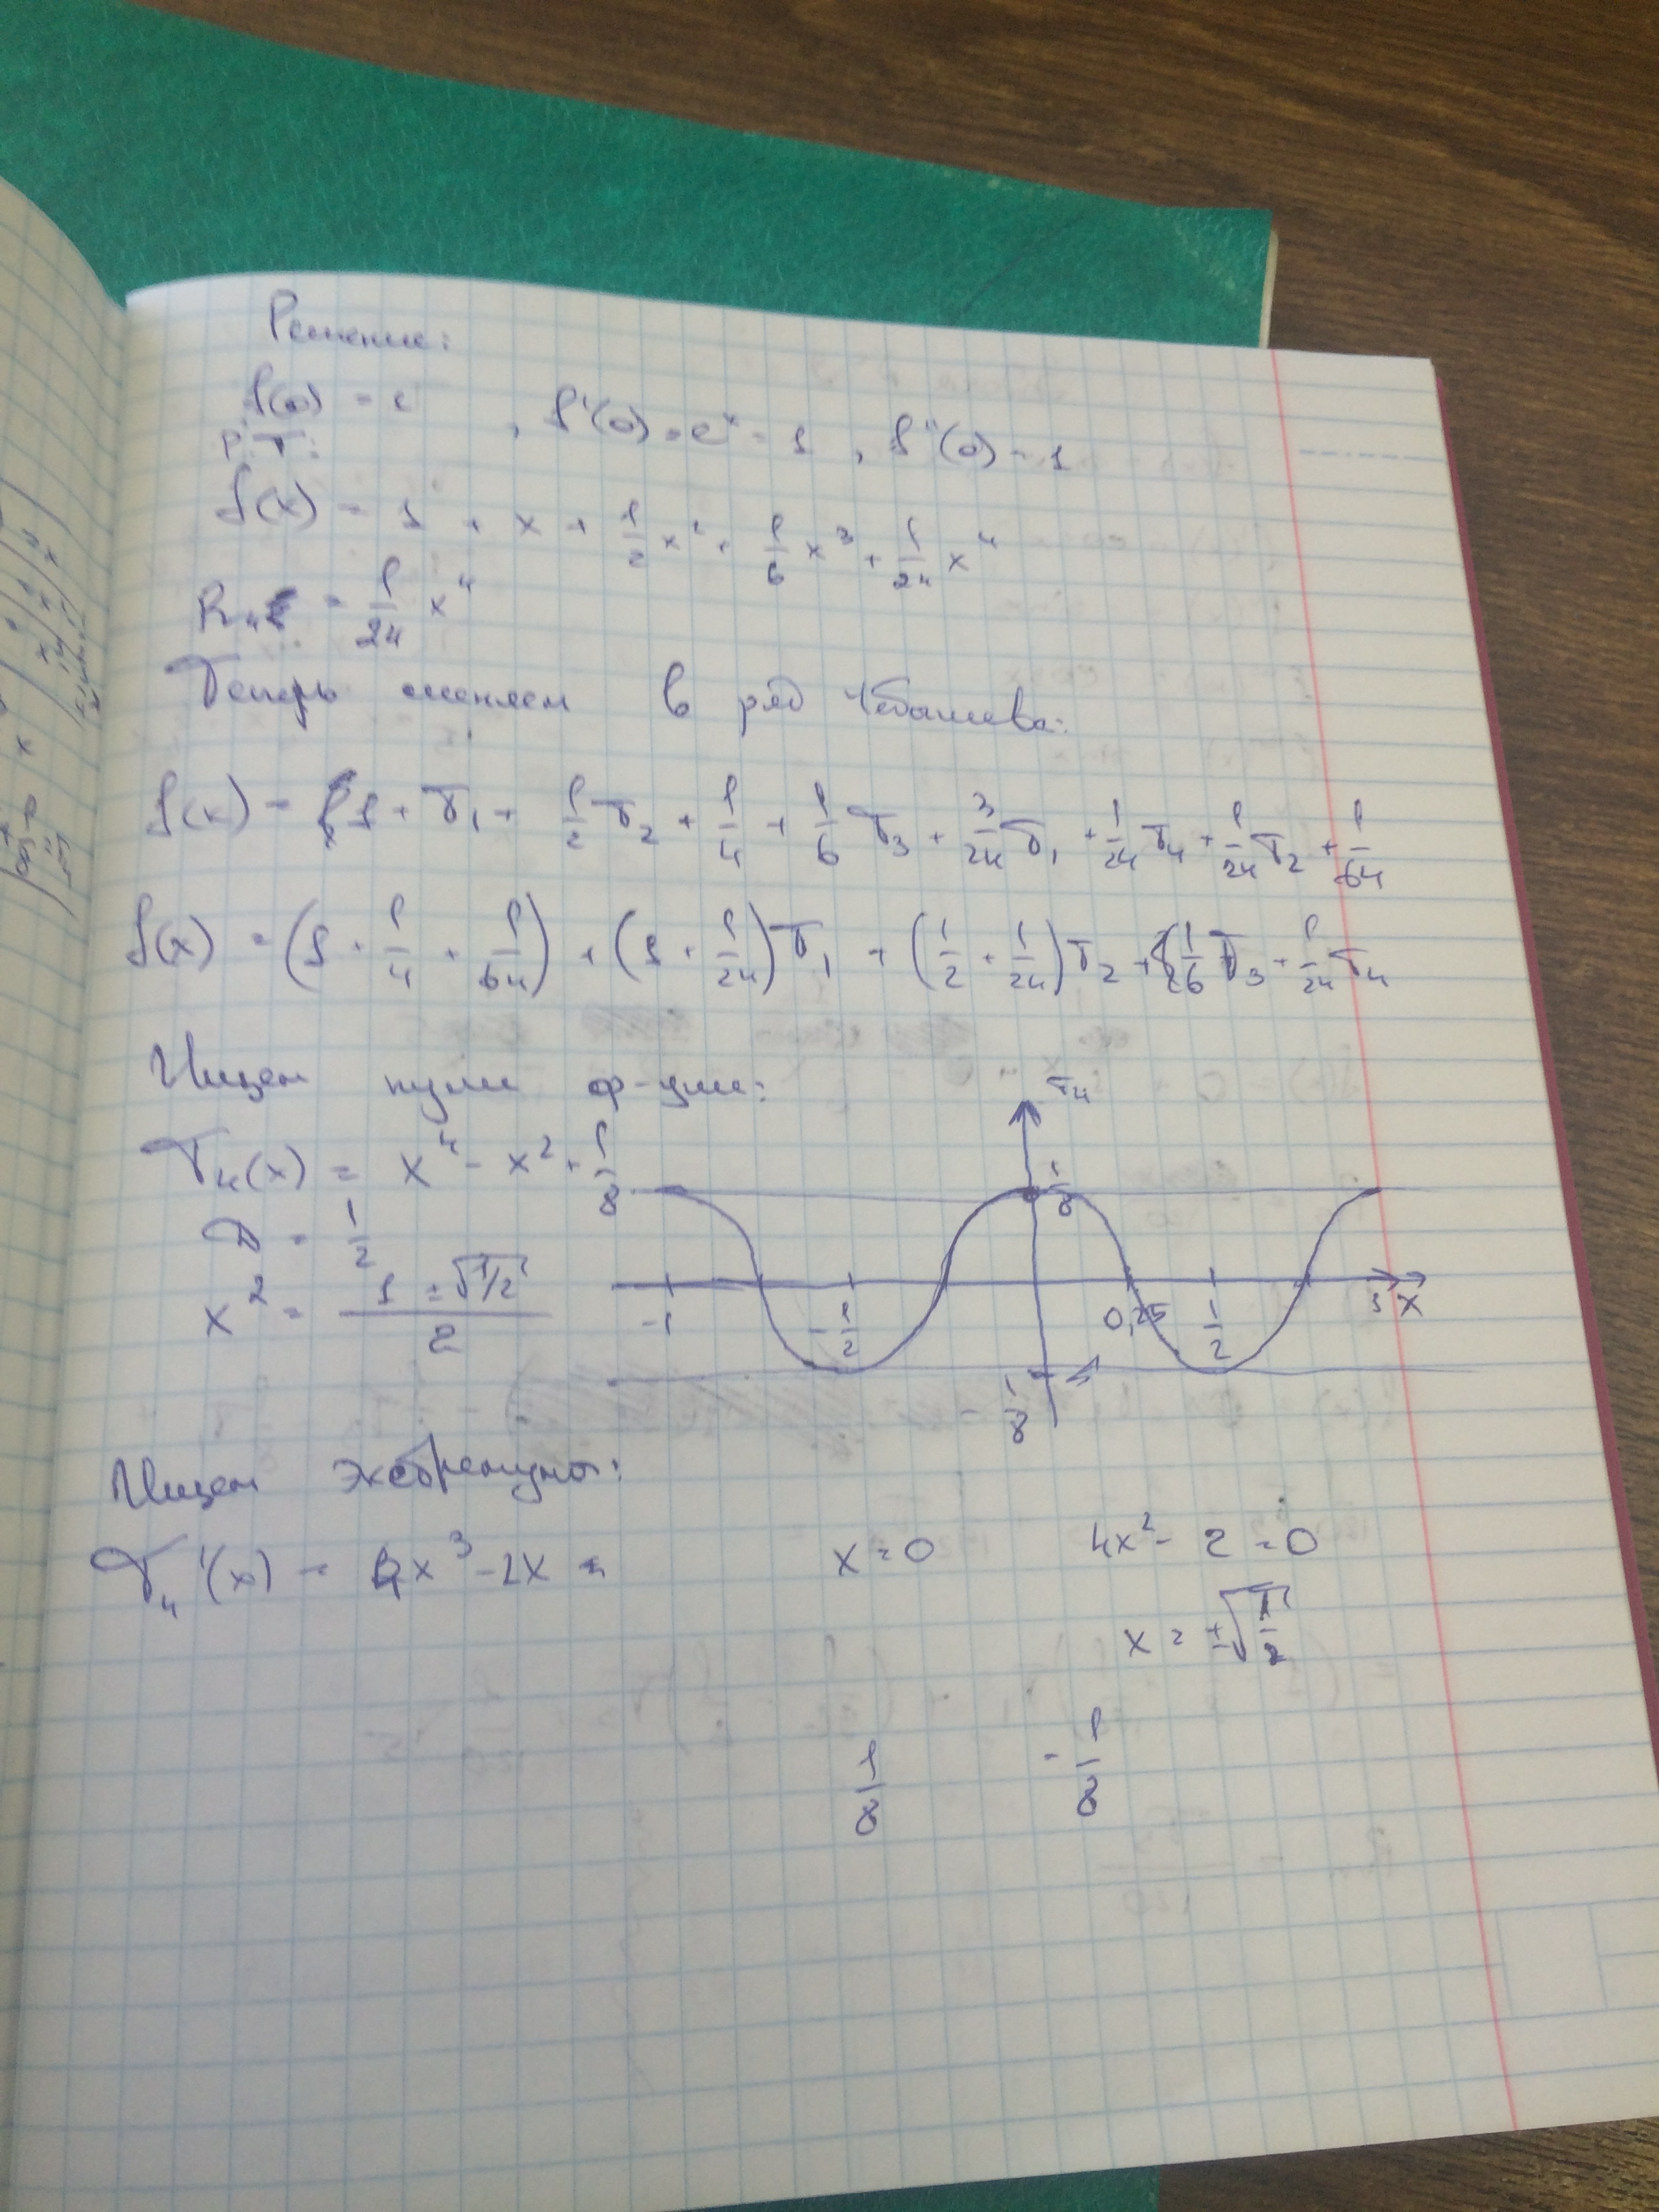 Решение:
f(0) = e , f'(0) = eˣ = 1 , f''(0) = 1
Р.Т.:
f(x) = 1 + x + 1/2 x² + 1/6 x³ + 1/24 x⁴
R₄ = 1/24 x⁴
Теперь в ряд Чебышева:
f(x) = 1 + T₁ + 1/2 T₂ + 1/4 + 1/6 T₃ + 3/24 T₁ + 1/24 T₄ + 1/24 T₂ + 1/64
f(x) = (1 + 1/4 + 1/64) + (1 + 1/24) T₁ + (1/2 + 1/24) T₂ + 1/6 T₃ + 1/24 T₄
Ищем нули ф-ции:
T₄(x) = x⁴ - x² + 1/8
D = 1/2
x² = (1 ± √1/2) / 2
T₄
1/8
-1
-1/2
0,25
1/2
1 x
-1/8
Ищем экстремумы:
T₄'(x) = 4x³ - 2x = x = 0 4x² - 2 = 0
x = ±√1/2
1/8 -1/8